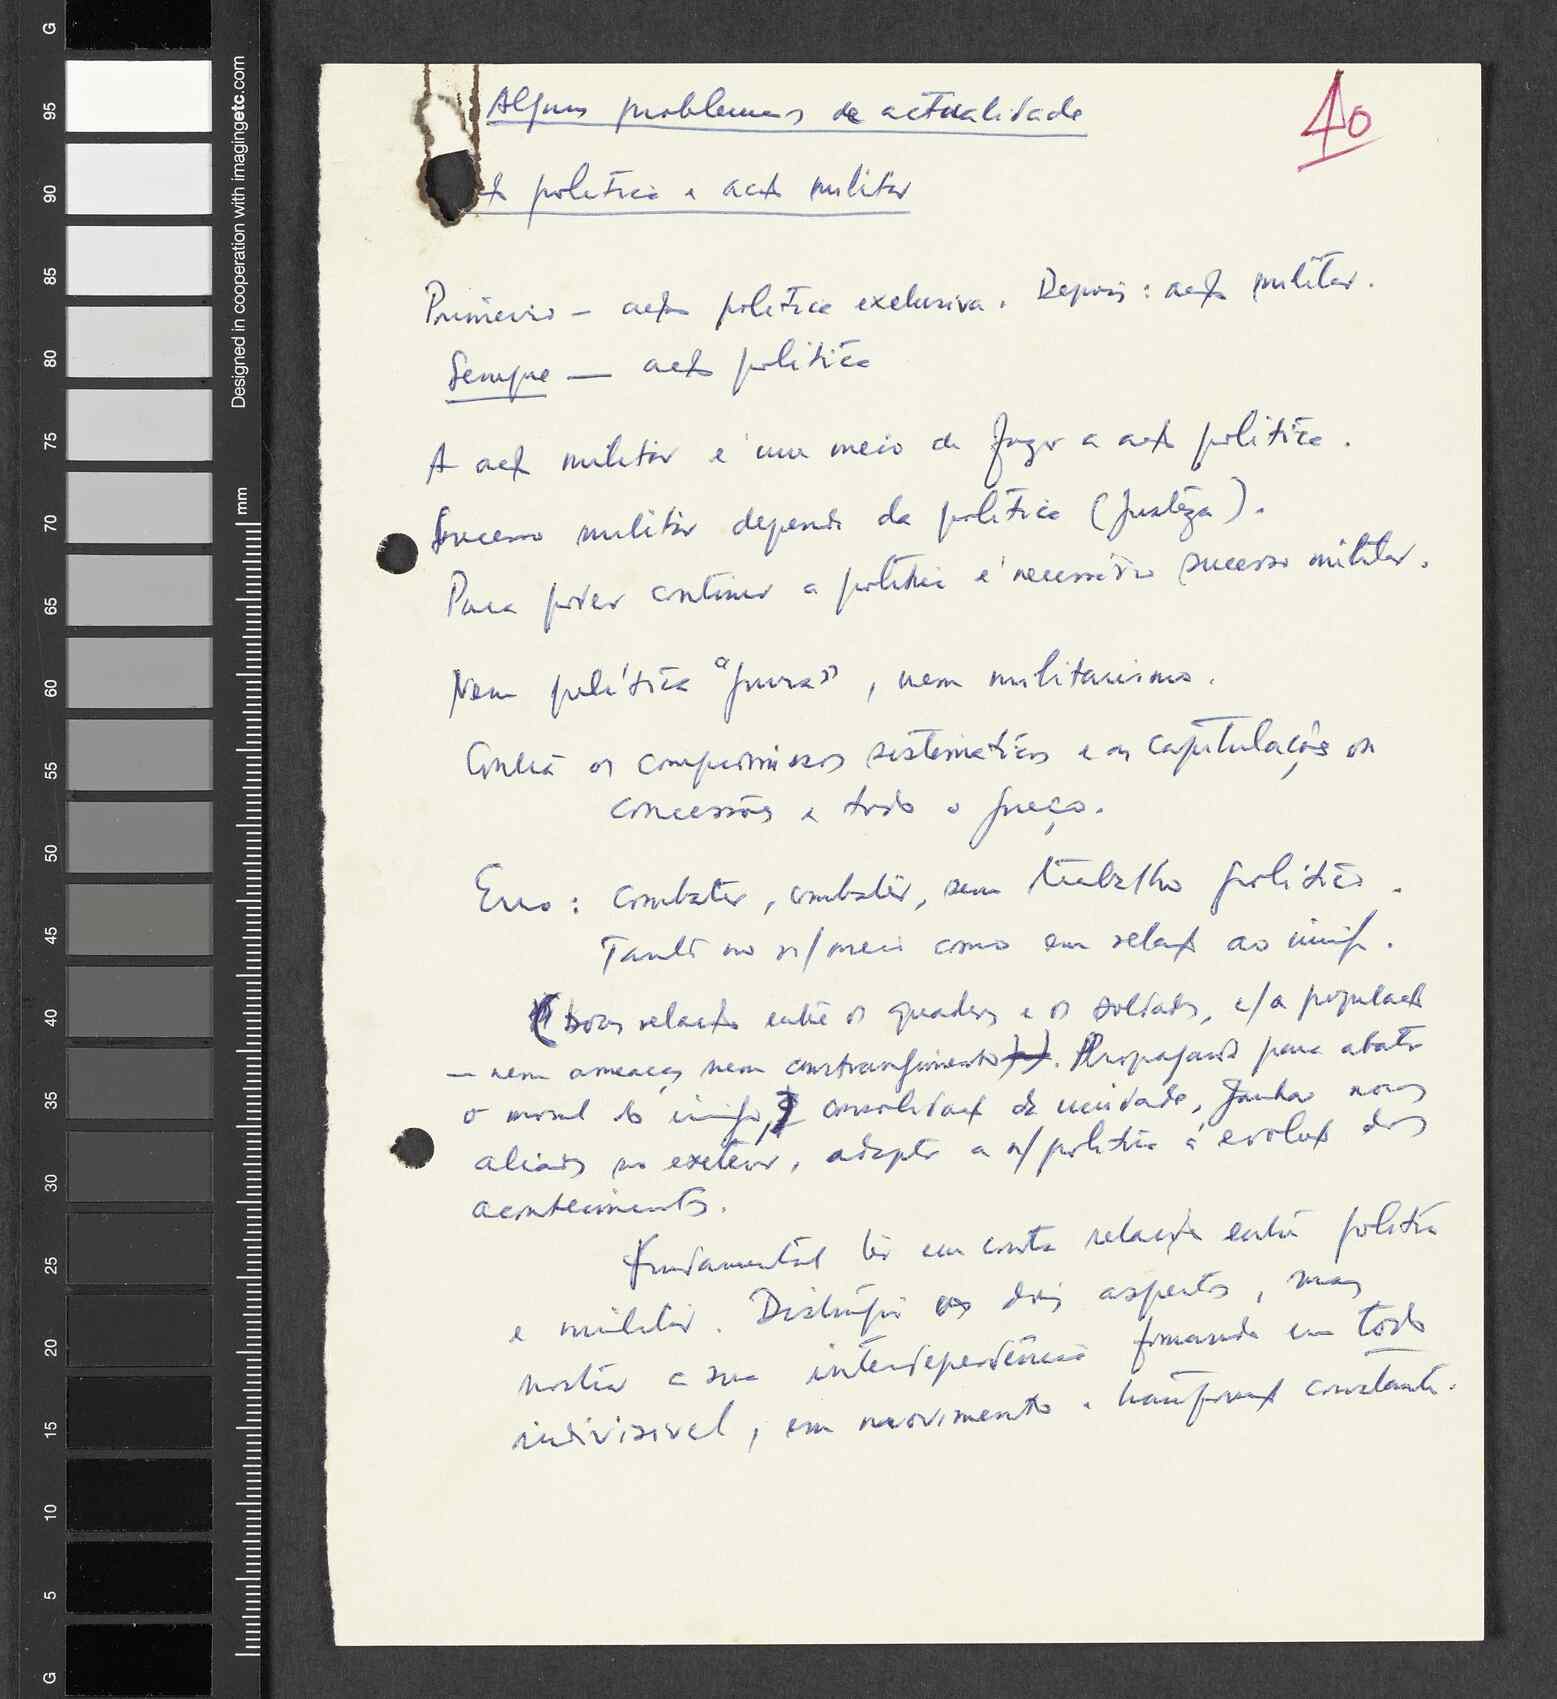 Alguns problemas de actualidade
40
política e acç militar
Primeiro — acç política exclusiva. Depois: acç militar.
Sempre — acç política
A acç militar é um meio de fazer a acç política.
Sucesso militar depende da política (justeza).
Para poder continuar a política é necessário sucesso militar.
Nem política "pura", nem militarismo.
Contra os compromissos sistemáticos e as capitulações ou
concessões a todo o preço.
Erro: combater, combater, sem trabalho político.
Tanto no n/meio como em relaç ao inimigo.
(boas relações entre os quadros e os soldados, c/a populaç
— nem ameaças nem constrangimento). Propaganda para abater
o moral do inimigo, consolidaç da unidade, ganhar novos
aliados no exterior, adaptar a n/política à evoluç dos
acontecimentos.
Fundamental ter em conta relações entre política
e militar. Distinguir os dois aspectos, mas
mostrar a sua interdependência formando um todo
indivisível, em movimento e transformaç constante.
G
95
90
85
80
75
70
65
60
55
50
45
40
35
30
25
20
15
10
5
G
Designed in cooperation with imagingetc.com
mm